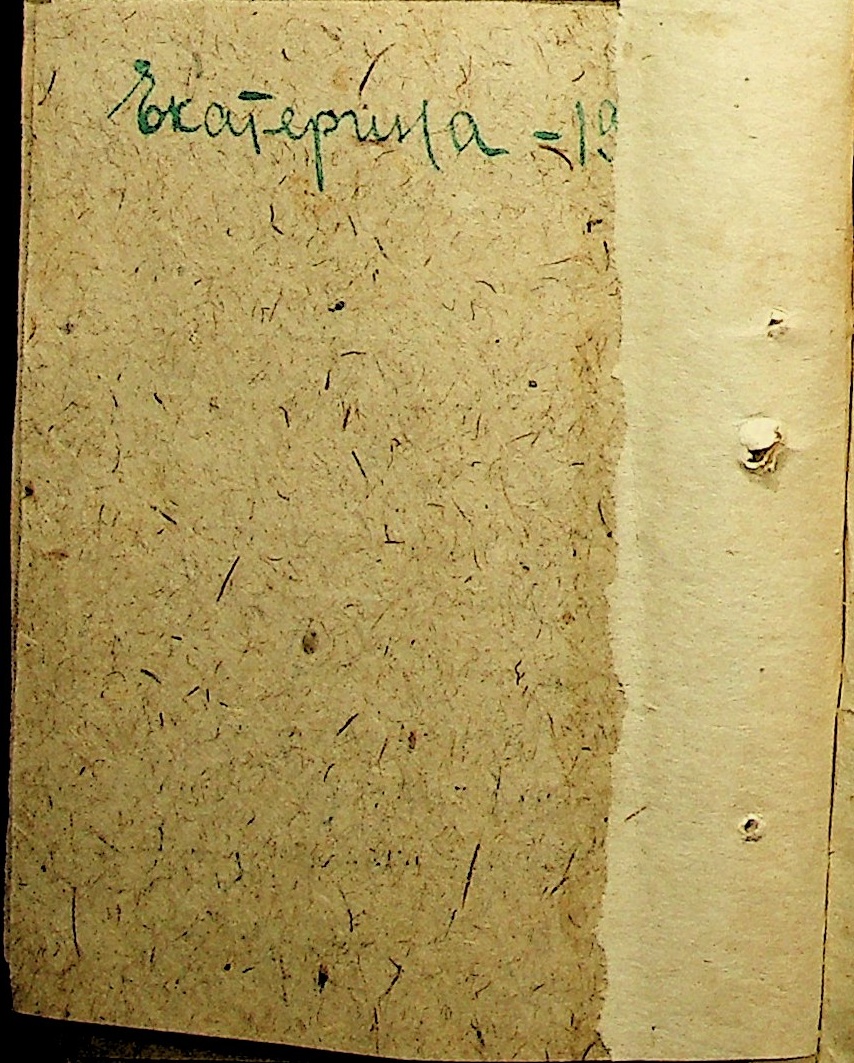 Екатерина -19